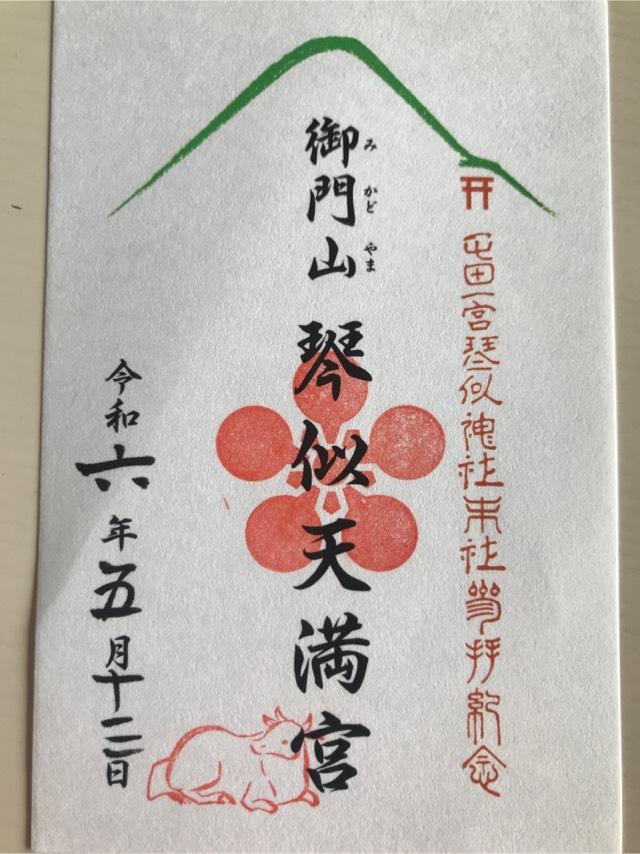 屯田一宮琴似神社末社參拝紀念
御門山 琴似天満宮
みかどやま
令和六年五月十二日